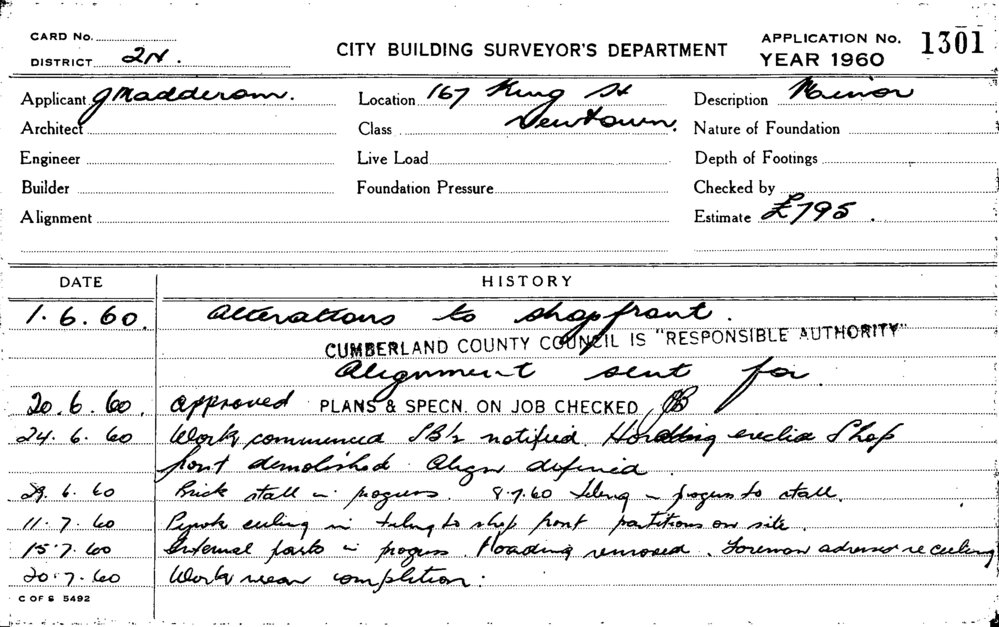 CARD No.
DISTRICT 2N.
CITY BUILDING SURVEYOR'S DEPARTMENT
APPLICATION No. 1301
YEAR 1960
Applicant J Madderom. Location 167 King St Description Minor
Architect Class Newtown. Nature of Foundation
Engineer Live Load Depth of Footings
Builder Foundation Pressure Checked by
Alignment Estimate £795.
DATE HISTORY
1.6.60. Alterations to shopfront.
CUMBERLAND COUNTY COUNCIL IS "RESPONSIBLE AUTHORITY"
Alignment sent for.
20.6.60. approved PLANS & SPECN. ON JOB CHECKED
24.6.60 Work commenced notified. Hoarding Shop
front demolished. Align defined.
29.6.60 Brick stall in progress. 8.7.60 tiling in progress to stall.
11.7.60 ceiling in tiling to shop front partitions on site.
15.7.60 Internal in progress. Hoarding removed. Foreman re ceiling
20.7.60 Work near completion.
C OF S 5492